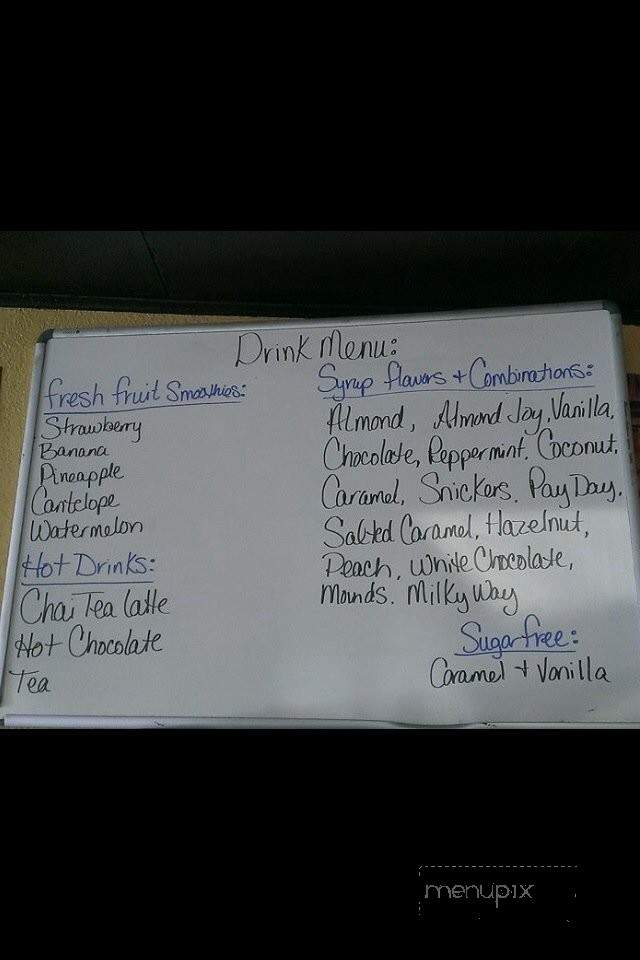 Drink Menu:
Fresh Fruit Smoothies:
Strawberry
Banana
Pineapple
Cantelope
Watermelon
Hot Drinks:
Chai Tea latte
Hot Chocolate
Tea
Syrup flavors + Combinations:
Almond, Almond Joy, Vanilla,
Chocolate, Peppermint, Coconut,
Caramel, Snickers, Pay Day,
Salted Caramel, Hazelnut,
Peach, White Chocolate,
Mounds, Milky Way
Sugar free:
Caramel + Vanilla
menupix